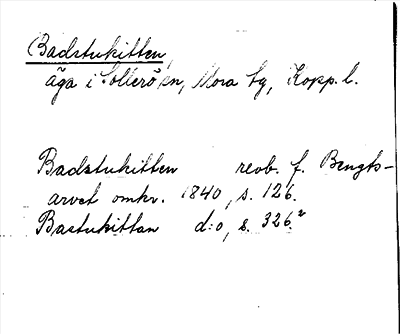 Badstukitten,
äga i Sollerö sn, Mora tg, Kopp. l.
Badstukitten reob. f. Bengts-
arvet omkr. 1840, s. 126.
Bastukittan d:o, s. 326.²